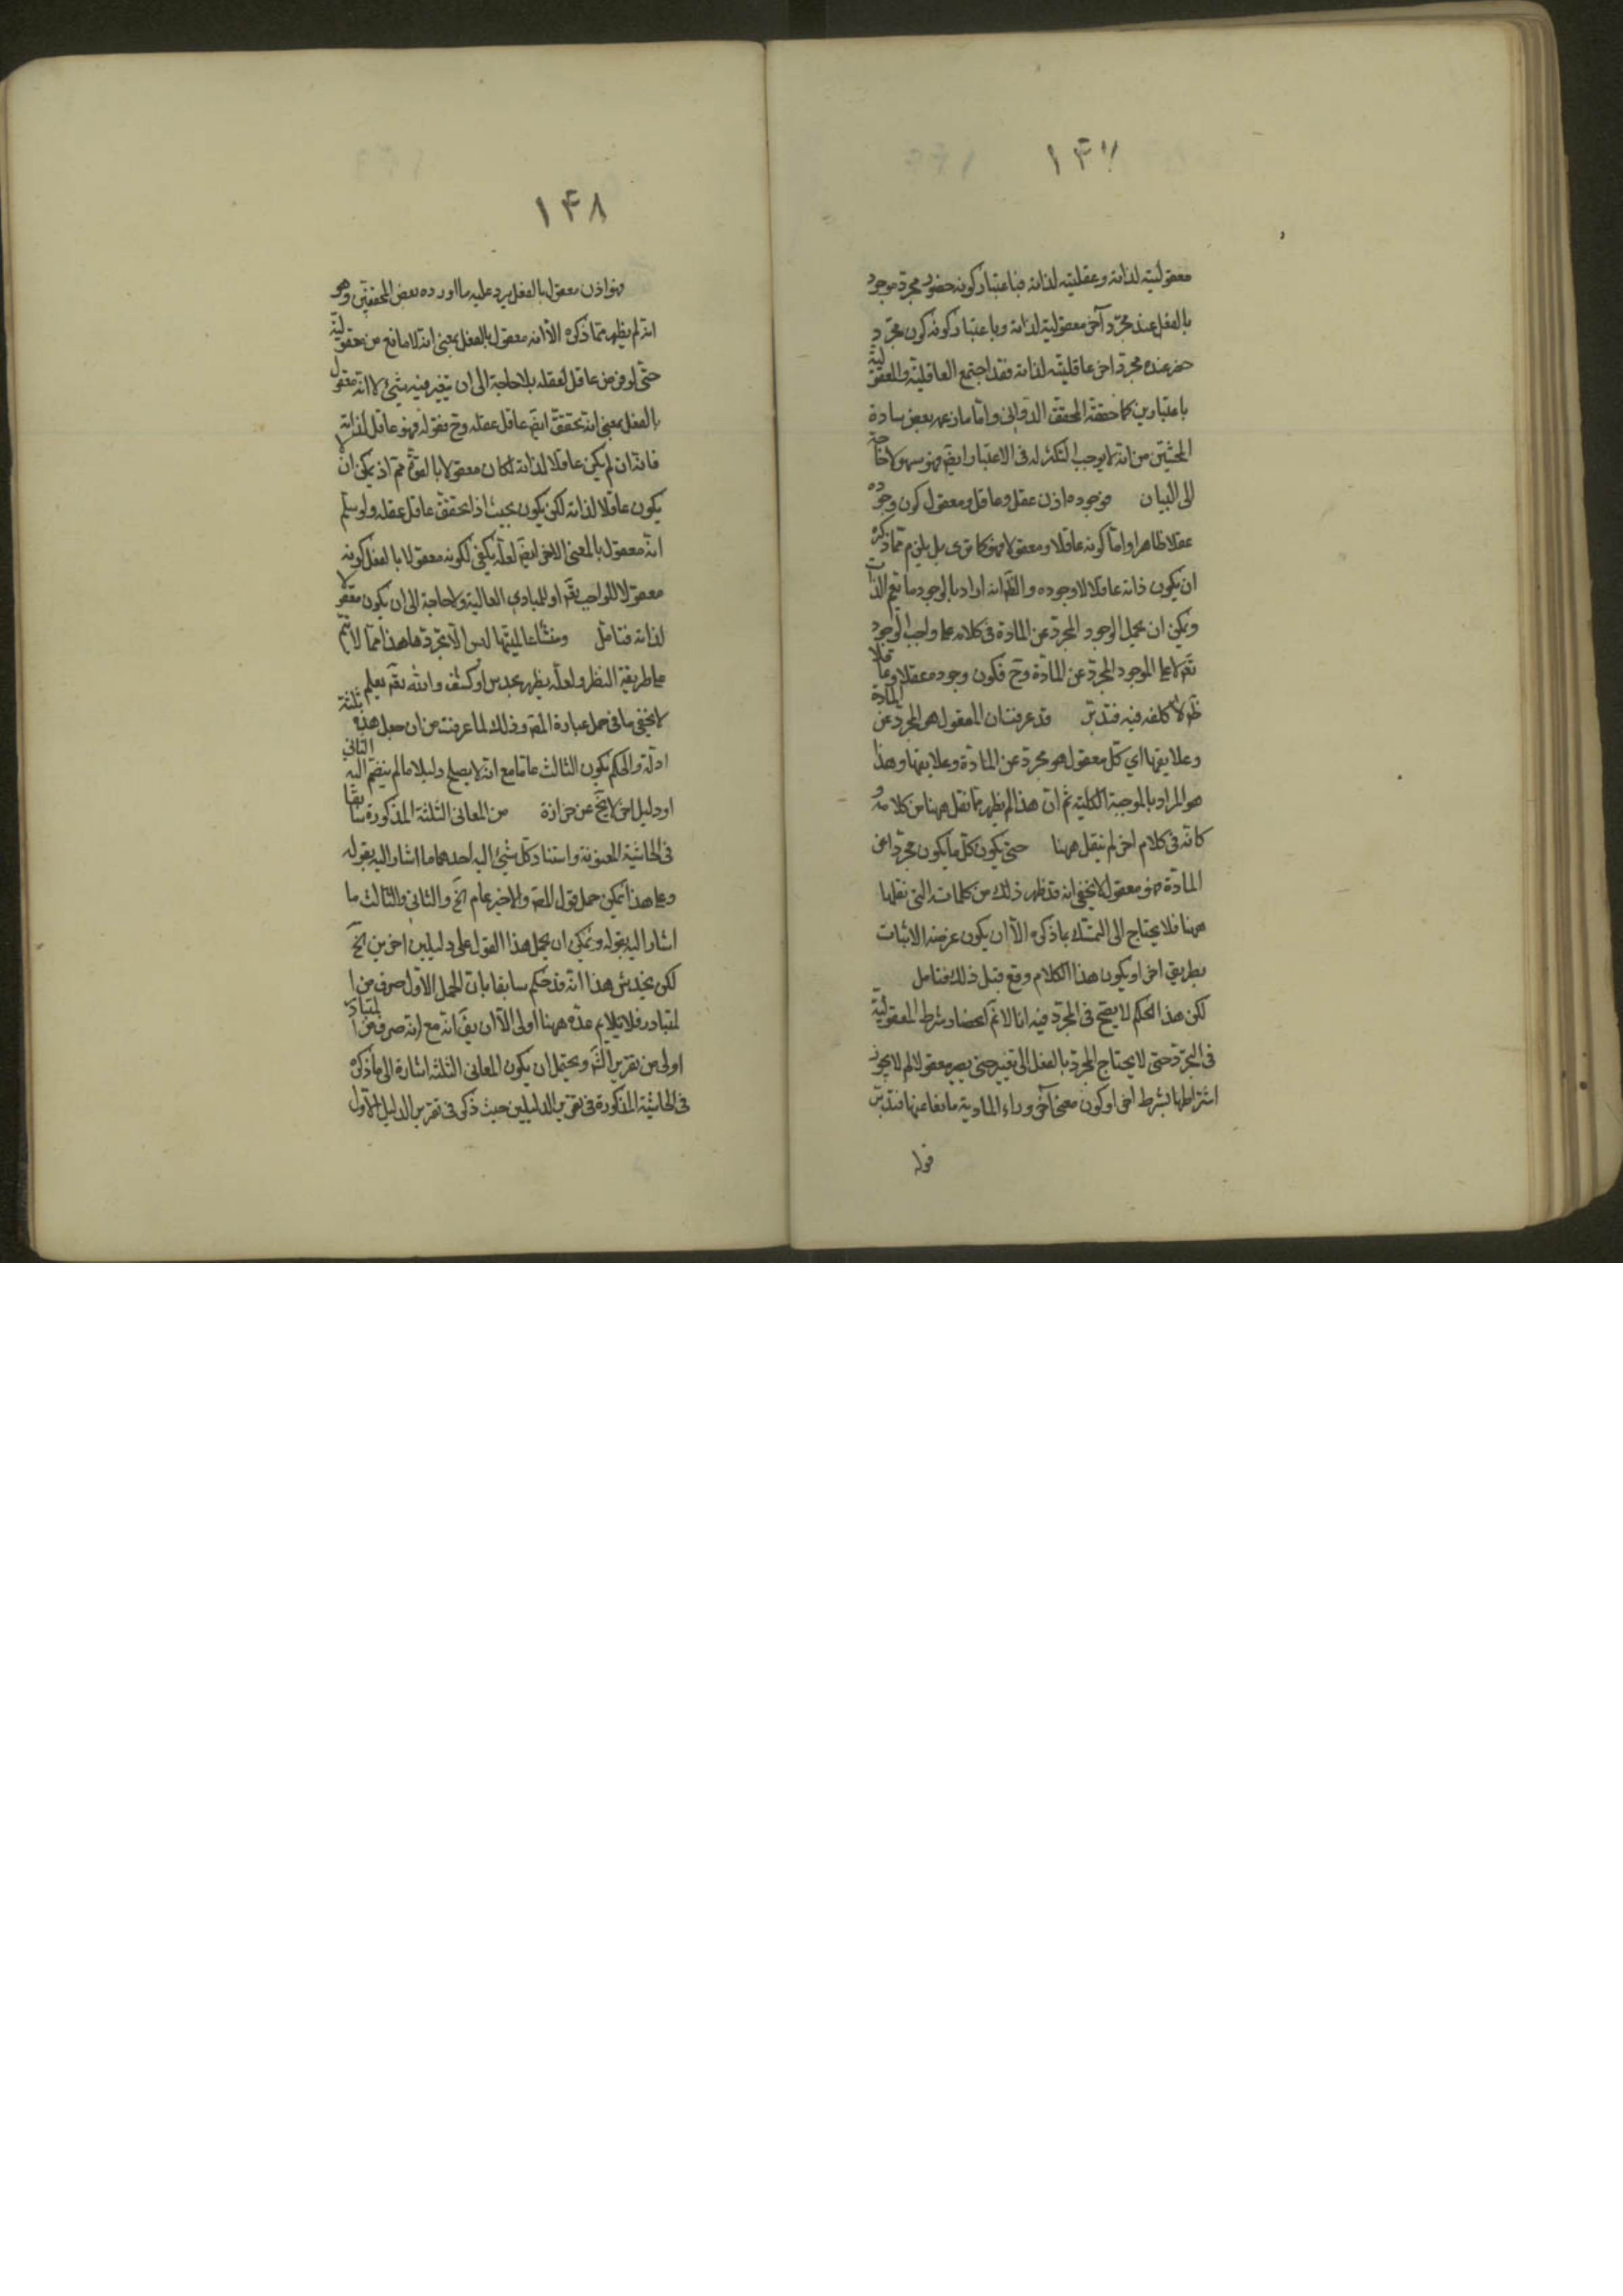 ١٤٧
معقولیته لذاته وعقلیته لذاته فباعتبار کونه حضور مجرد موجود
بالفعل عند مجرّد آخر معقولیة لذاته وباعتبار کونه کون مجرّد
حضر عنده مجرد اخر عاقلیته لذاته فقد اجتمع العاقلیة والمعقولیة
باعتبارین کما حققه المحقق الدوانی واما ما زعمه بعض سادة
المحشین من انه لا یوجب التکثر له فی الاعتبار ایضم فهو سهو لا حاجة
الی البیان فوجوده اذن عقل وعاقل ومعقول کون وجوده
عقلا ظاهر واما کونه عاقلا ومعقولا فهو کما تری بل یلزم مما ذکره
ان یکون ذاته عاقلا لا وجوده والظ انه اراد بالوجود ما یعم الذات
ویمکن ان یحمل الوجود المجرد عن المادة فی کلامه علی واجب الوجود
تع لا علی الموجود المجرد عن المادة وح فکون وجوده عقلا وعاقلا
ظ لا کلفه فیه فتدبر قد عرفت ان المعقول هو المجرد عن المادة
وعلایقها ای کل معقول هو مجرد عن المادة وعلایقها وهذا
هو المراد بالموجبة الکلیة ثم ان هذا لم یظهر مما نقل ههنا من کلامه و
کانه فی کلام اخر لم ینقل ههنا حتی یکون کل ما یکون مجردا عن
المادة فهو معقول لا یخفی انه قد ظهر ذلک من کلماته التی نقلها
ههنا فلا یحتاج الی التمسک بما ذکره الا ان یکون غرضه الاثبات
بطریق اخر او یکون هذا الکلام وقع قبل ذلک فتامل
لکن هذا الحکم لا یصح فی المجرد فیه انا لا نم انحصار شرط المعقولیة
فی التجرد حتی لا یحتاج المجرد بالفعل الی تغییر حتی یصیر معقولا لم لا یجوز
اشتراطها بشرط اخر او کون معنی آخر وراء المادیة مانعا عنها فتدبر
قوله
١٤٨
فهو اذن معقول بالفعل یرد علیه ما اورده بعض المحققین وهو
انه لم یظهر مما ذکره الا انه معقول بالفعل بمعنی انه لا مانع من معقولیته
حتی لو فرض عاقل لعقله بلا حاجة الی ان یتغیر فیه شیئ لا انه معقول
بالفعل بمعنی انه تحقق ایضم عاقل عقله وح فقوله فهو عاقل لذاته
فانه ان لم یکن عاقلا لذاته لکان معقولا بالقوة مم اذ یمکن ان لا
یکون عاقلا لذاته لکن یکون بحیث اذا تحقق عاقل عقله ولو سلم
انه معقول بالمعنی الاخر ایضم لعله یکفی لکونه معقولا بالفعل کونه
معقولا للواجب تع او للمبادی العالیة ولا حاجة الی ان یکون معقولا
لذاته فتامل ومنشا عالمیتها لیس الا تجردها هذا مما لا یتم
علی طریقة النظر ولعله یظهر بحدس او کشف والله تع یعلم
لا یخفی ما فی حمل عبارة المصم وذلک لما عرفت من ان جعل هذه ثلثة
ادلة والحکم بکون الثالث عاما مع انه لا یصلح دلیلا ما لم ینضم الیه الثانی
او دلیل اخر لا یخ عن حزازة من المعانی الثلثة المذکورة سابقا
فی الحاشیة المعنونة واستناد کل شیئ الیه احدهما ما اشار الیه بقوله
وعلی هذا یمکن حمل قول المصم والاخیر عام الخ والثانی والثالث ما
اشار الیه بقوله ویمکن ان یحمل هذا القول علی دلیلین اخرین الخ
لکن یخدش هذا انه قد حکم سابقا بان الحمل الاول صرف من ا
لمتبادر فلا یلایم عده ههنا اولی الا ان یق انه مع انه صرف من المتبادر
اولی من تقریر الش ویحتمل ان یکون المعانی الثلثة اشارة الی ما ذکره
فی الحاشیة المذکورة فی تقریر الدلیلین حیث ذکر فی تقریر الدلیل الاول